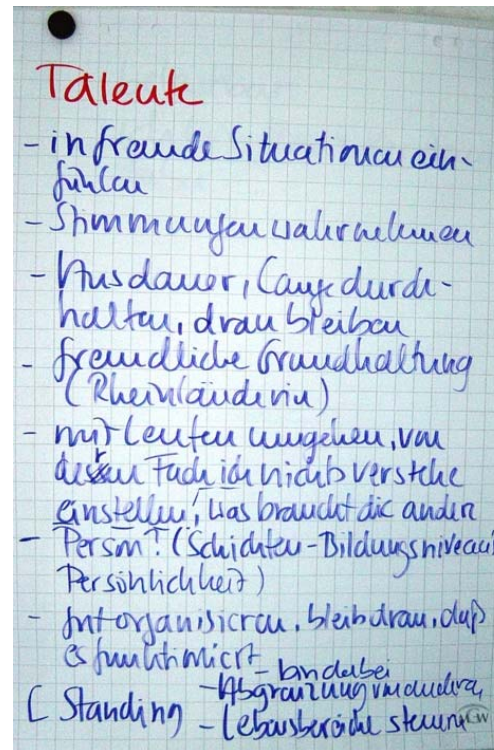 Talente
- in fremde Situationen ein-
fühlen
- Stimmungen wahrnehmen
- Ausdauer, lange durch-
halten, dran bleiben
- freundliche Grundhaltung
(Rheinländerin)
- mit Leuten umgehen, von
deren Fach ich nichts verstehe
einstellen, was braucht die andere
- Person? (Schichten-Bildungsniveau
Persönlichkeit)
- gut organisieren, bleib dran, daß
es funktioniert - bin dabei
- Abgrenzung von anderen
[ Standing - Lebensbereiche steuern
CW